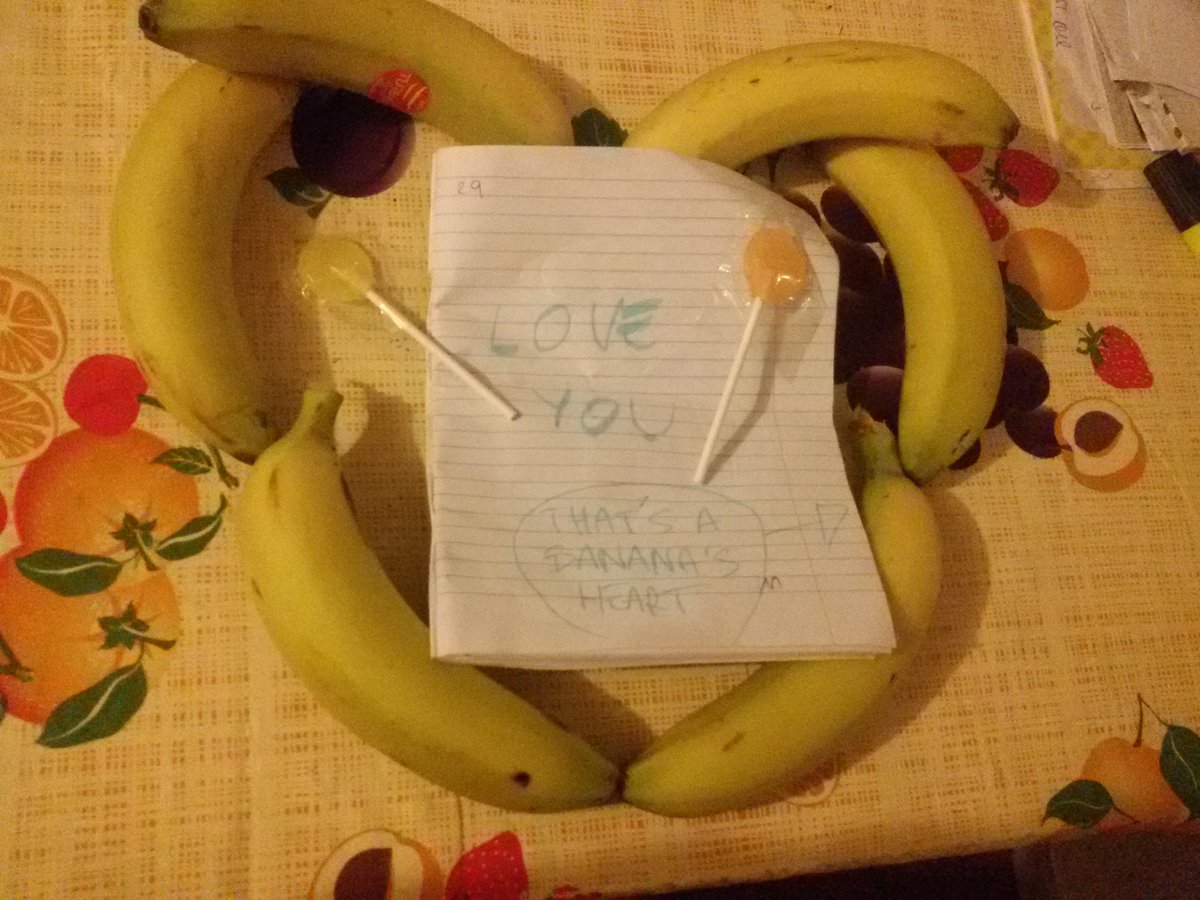 29
LOVE
YOU
THAT'S A
BANANA'S
HEART